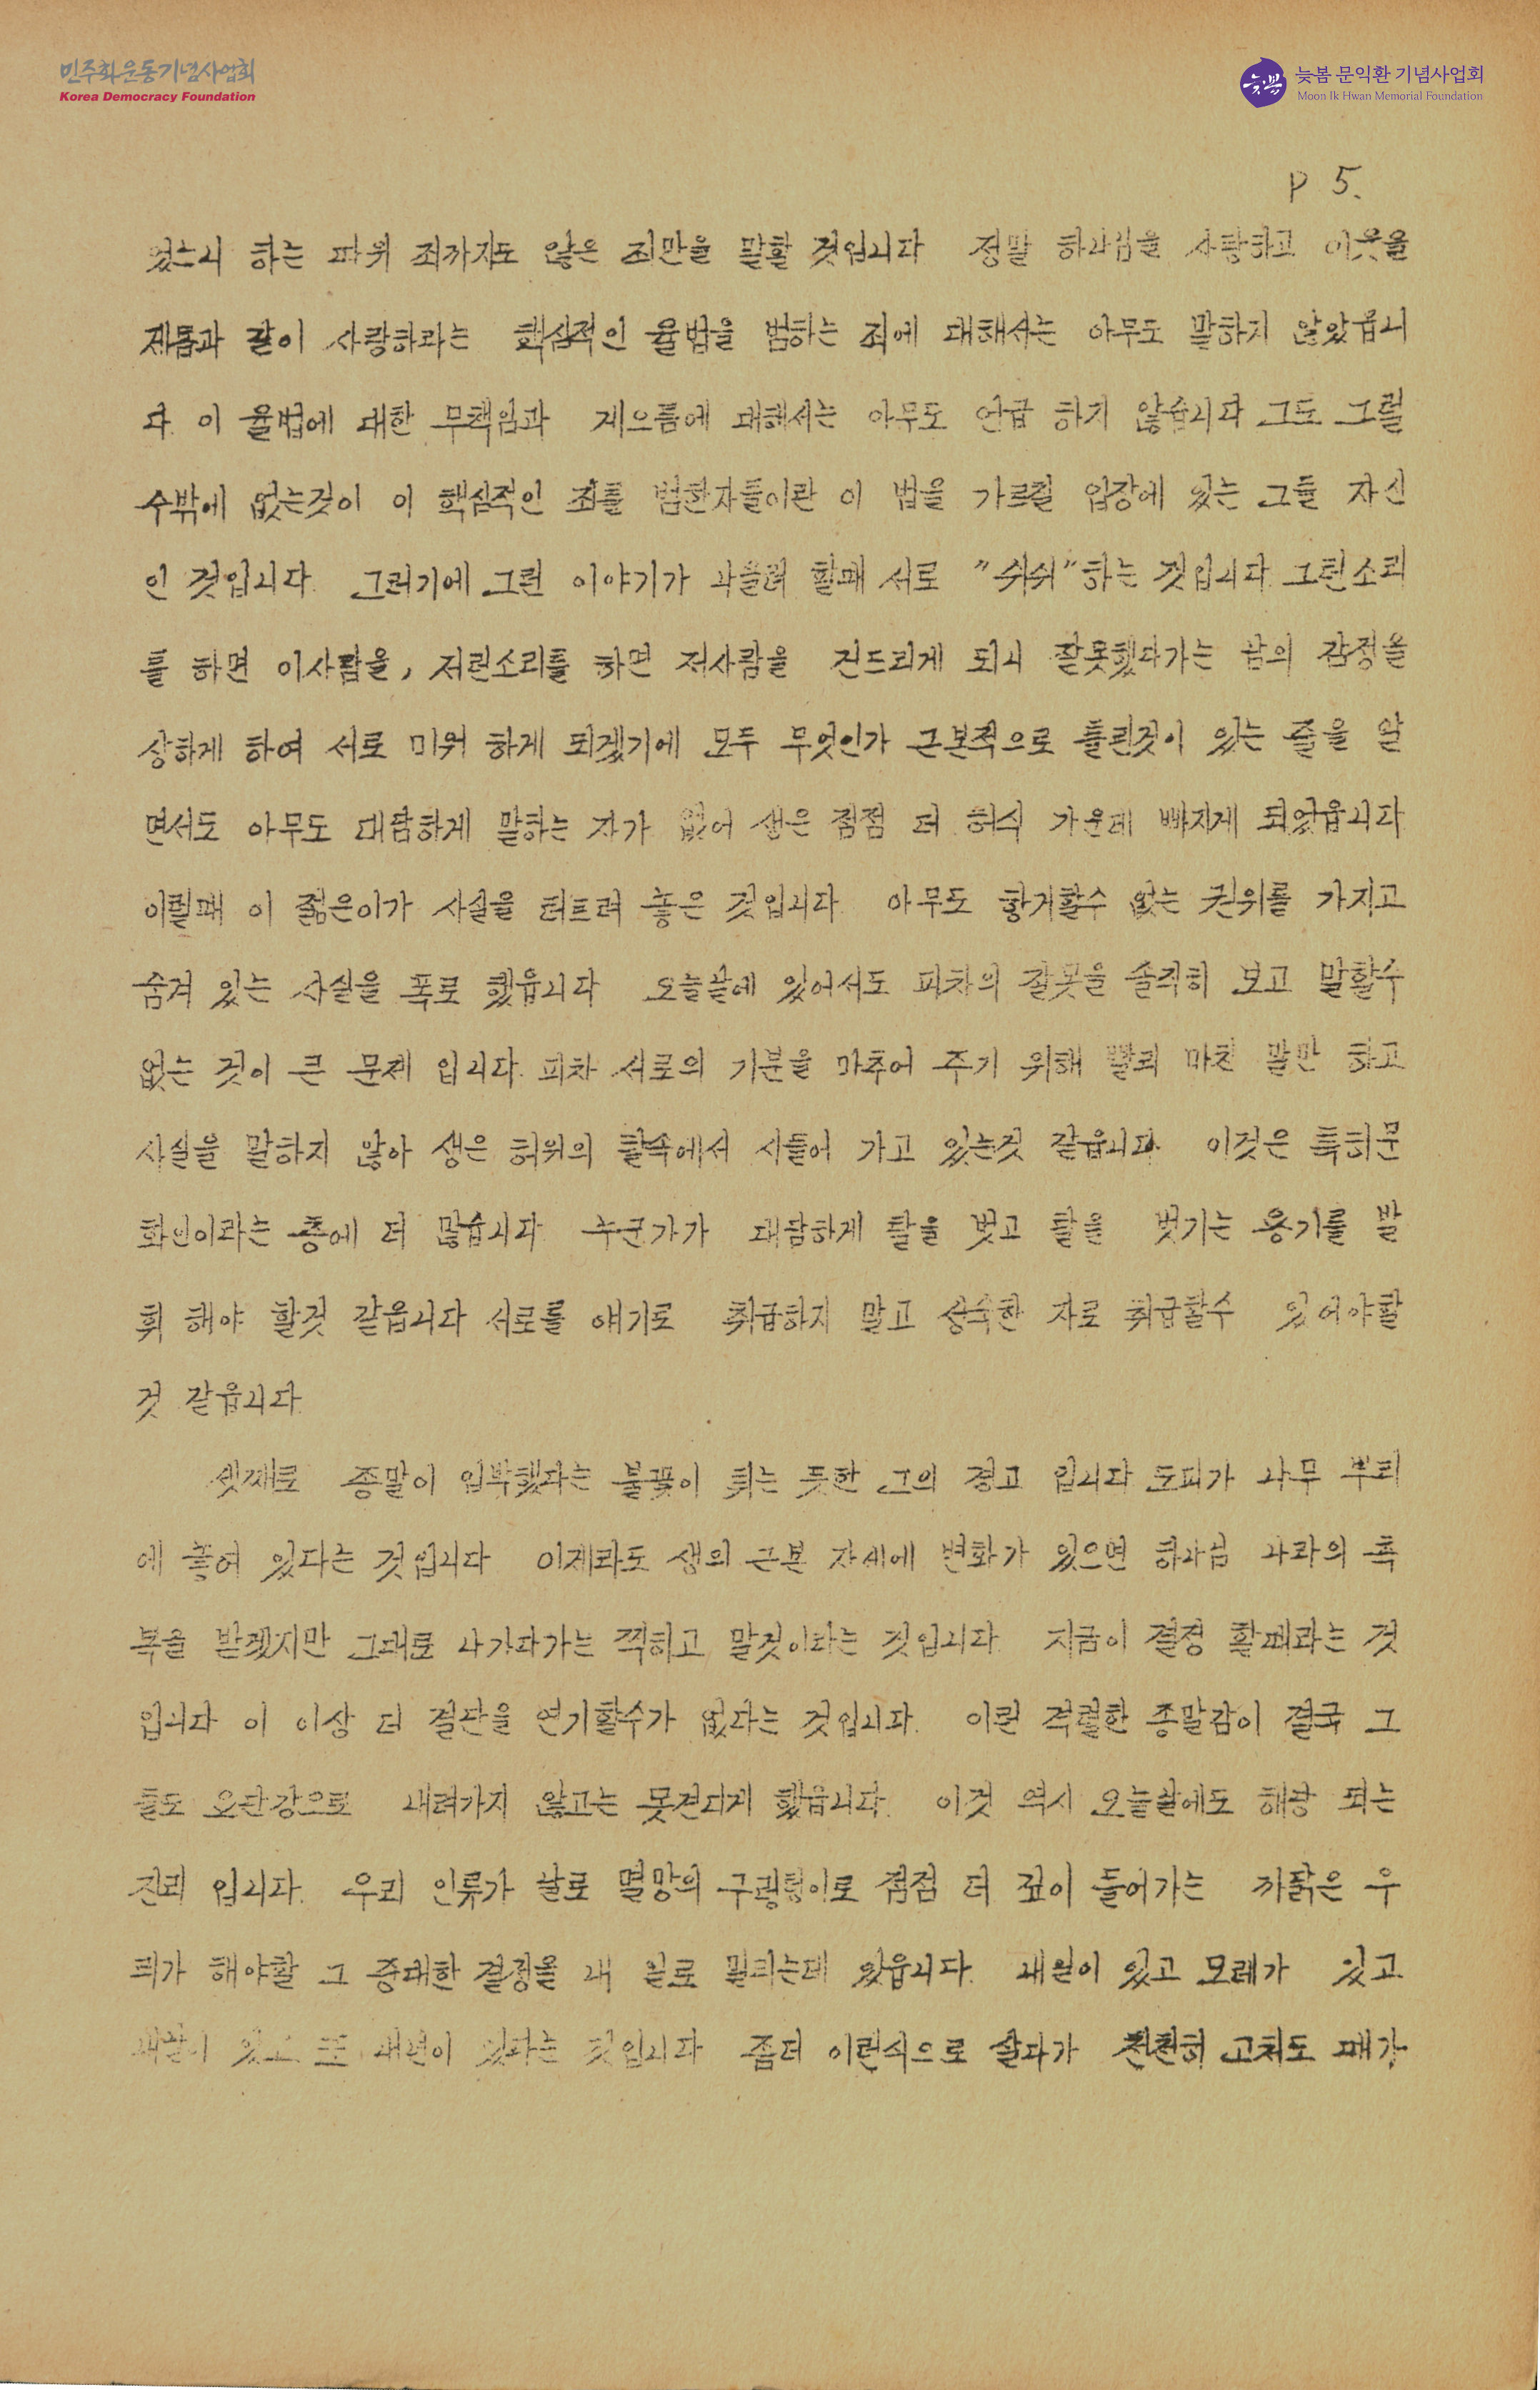 민주화운동기념사업회
Korea Democracy Foundation
늦봄
늦봄 문익환 기념사업회
Moon Ik Hwan Memorial Foundation
P 5.
었느니 하는 따위 죄까지도 않은 죄만을 말할 것입니다 정말 하나님을 사랑하고 이웃을
제몸과 같이 사랑하라는 핵심적인 율법을 범하는 죄에 대해서는 아무도 말하지 않았읍니
다. 이 율법에 대한 무책임과 게으름에 대해서는 아무도 언급 하지 않습니다 그도 그럴
수밖에 없는것이 이 핵심적인 죄를 범한자들이란 이 법을 가르칠 입장에 있는 그들 자신
인 것입니다. 그러기에 그런 이야기가 나올려 할때 서로 "쉬쉬"하는 것입니다. 그런소리
를 하면 이사람을, 저런소리를 하면 저사람을 건드리게 되니 잘못했다가는 남의 감정을
상하게 하여 서로 미워 하게 되겠기에 모두 무엇인가 근본적으로 틀린것이 있는 줄을 알
면서도 아무도 대담하게 말하는 자가 없어 생은 점점 더 허식 가운데 빠지게 되었읍니다
이럴때 이 젊은이가 사실을 터트려 놓은 것입니다. 아무도 항거할수 없는 권위를 가지고
숨겨 있는 사실을 폭로 했읍니다 오늘날에 있어서도 피차의 잘못을 솔직히 보고 말할수
없는 것이 큰 문제 입니다. 피차 서로의 기분을 마추어 주기 위해 빨리 마친 말만 하고
사실을 말하지 않아 생은 허위의 탈속에서 시들어 가고 있는것 같읍니다. 이것은 특히문
화인이라는 층에 더 많습니다 누군가가 대담하게 탈을 벗고 탈을 벗기는 용기를 발
휘 해야 할것 같읍니다 서로를 얘기로 취급하지 말고 성숙한 자로 취급할수 있어야할
것 같읍니다.
셋째로 종말이 임박했다는 불꽃이 튀는 듯한 그의 경고 입니다 도끼가 나무 뿌리
에 놓여 있다는 것입니다 이제라도 생의 근본 자세에 변화가 있으면 하나님 나라의 축
복을 받겠지만 그대로 나가다가는 찍히고 말것이라는 것입니다. 지금이 결정 할때라는 것
입니다 이 이상 더 결단을 연기할수가 없다는 것입니다. 이런 격렬한 종말감이 결국 그
들도 요단강으로 내려가지 않고는 못견디게 했읍니다. 이것 역시 오늘날에도 해당 되는
진리 입니다. 우리 인류가 날로 멸망의 구렁텅이로 점점 더 깊이 들어가는 까닭은 우
리가 해야할 그 중대한 결정을 내 일로 밀리는데 있읍니다. 내일이 있고 모레가 있고
내달이 있고 또 내년이 있다는 것입니다 좀더 이런식으로 살다가 천천히 고쳐도 때가